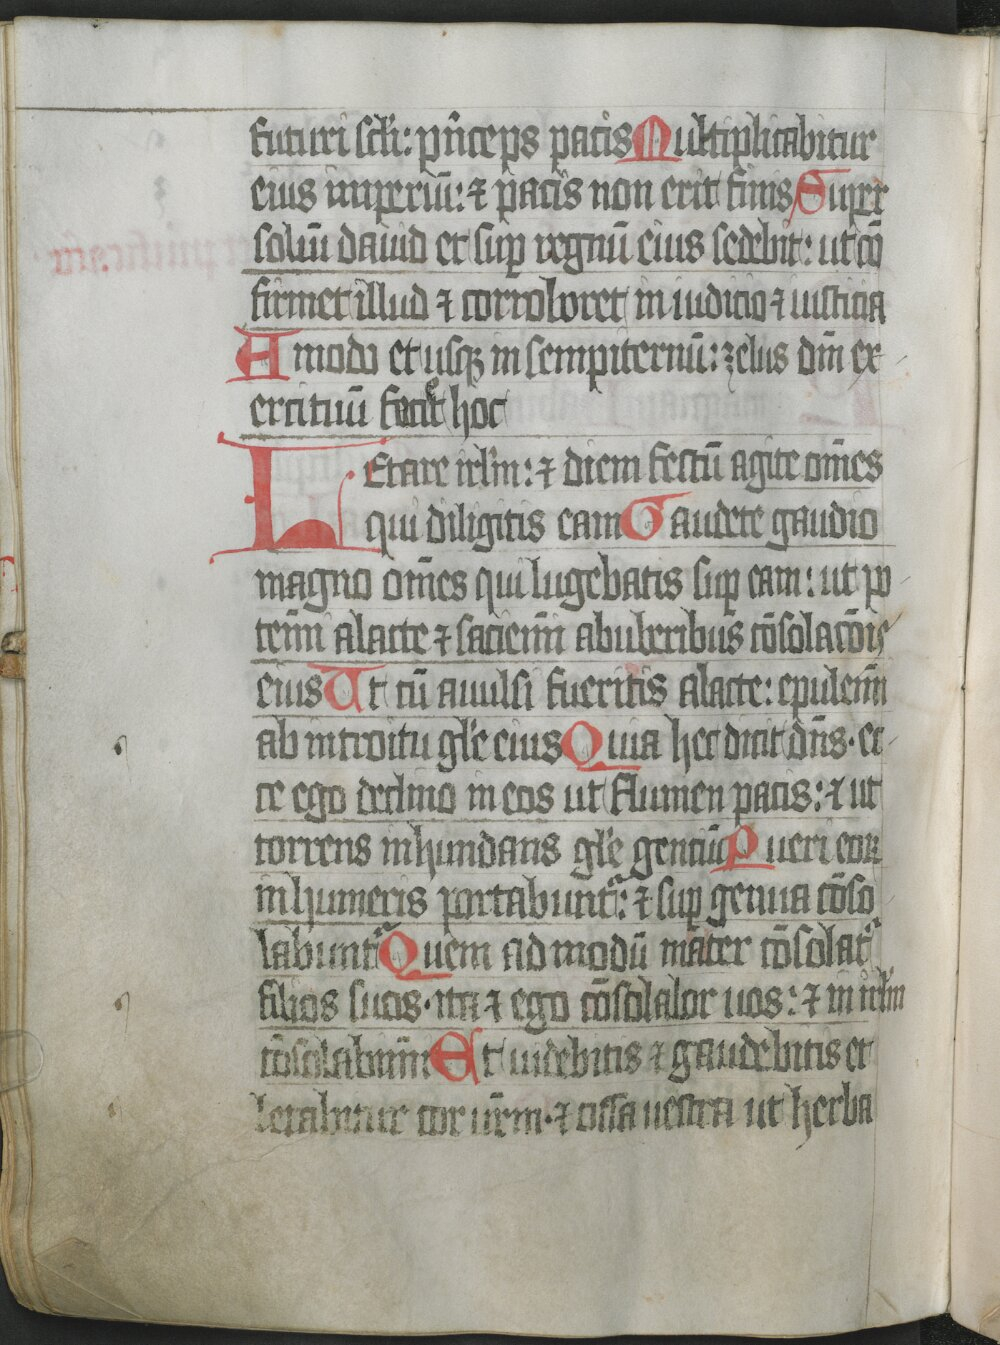 futuri scl'i: pⁿceps pacis Multiplicabitur
eius imperiū: ⁊ pacis non erit finis Super
soliū dauid et suꝑ regnū eius sedebit: ut cō
firmet illud ⁊ corroboret in iudicio ⁊ iusticia
A modo et usqꝫ in sempiternū: zelus dn̄i ex
ercituū faciet hoc
Letare irl'm: ⁊ diem festū agite om̄es
qui diligitis eam Gaudete gaudio
magno om̄es qui lugebatis suꝑ eam: ut po
tem̄i a lacte ⁊ saciem̄i ab uberibus cōsolacōis
eius Ut cū auulsi fueritis a lacte: epulem̄i
ab introitu gl'e eius Quia hec dicit dn̄s· ec
ce ego declino in eos ut flumen pacis: ⁊ ut
torrens inhundans gl'e genciū Pueri eoꝝ
in humeris portabuntᵃ: ⁊ suꝑ genua cōso
labuntᵃ Quem ad modū mater cōsolatᵃ
filios suos· ita ⁊ ego cōsolabor uos: ⁊ in irl'm
cōsolabim̄i Et uidebitis ⁊ gaudebitis et
letabitur cor ur̄m· ⁊ ossa uestra ut herba